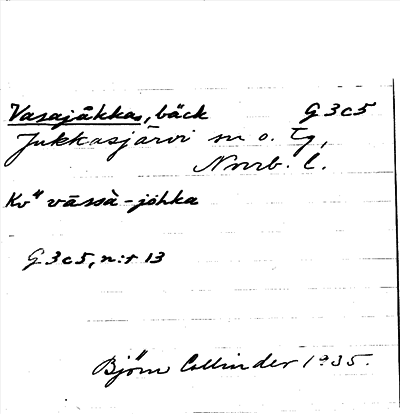 Vasajåkka, bäck G 3 c 5
Jukkasjärvi sn o. tg,
Norrb. l.
Kv" vāssà-jåhka
G 3 c 5, n:r 13
Björn Collinder 1935.